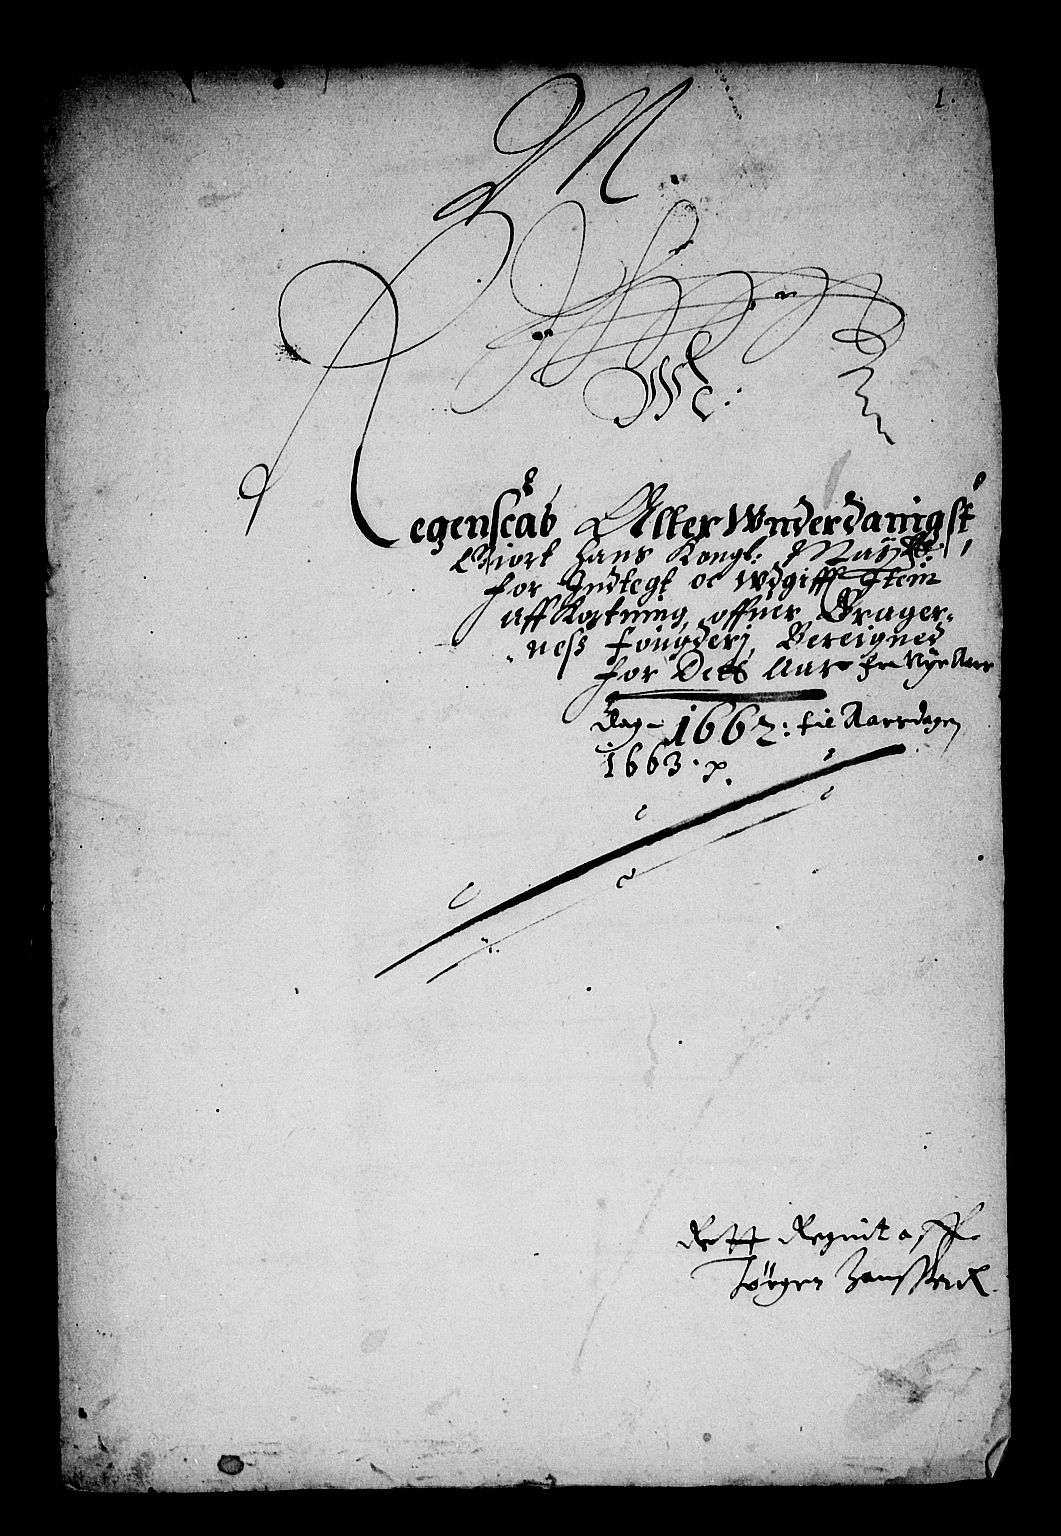 1.
M.
Regenscab Aller Wnderdanigst
Giort Hans Kongl: Maÿtt:
for Indtegt oc Wdgifft Item
aff Kortning offuer Brager-
ness fougderj Bereigned
for Dets Aar fra Nÿe Aars
Dag 1662: til Aarsdagen
1663. p.
Rett Regnit aff
Jörgen Hanssen